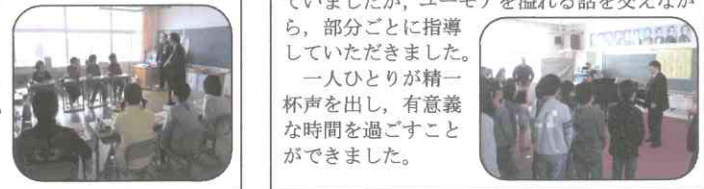 ていましたが，ユーモアを溢れる話を交えなが
ら，部分ごとに指導
していただきました。
一人ひとりが精一
杯声を出し，有意義
な時間を過ごすこと
ができました。